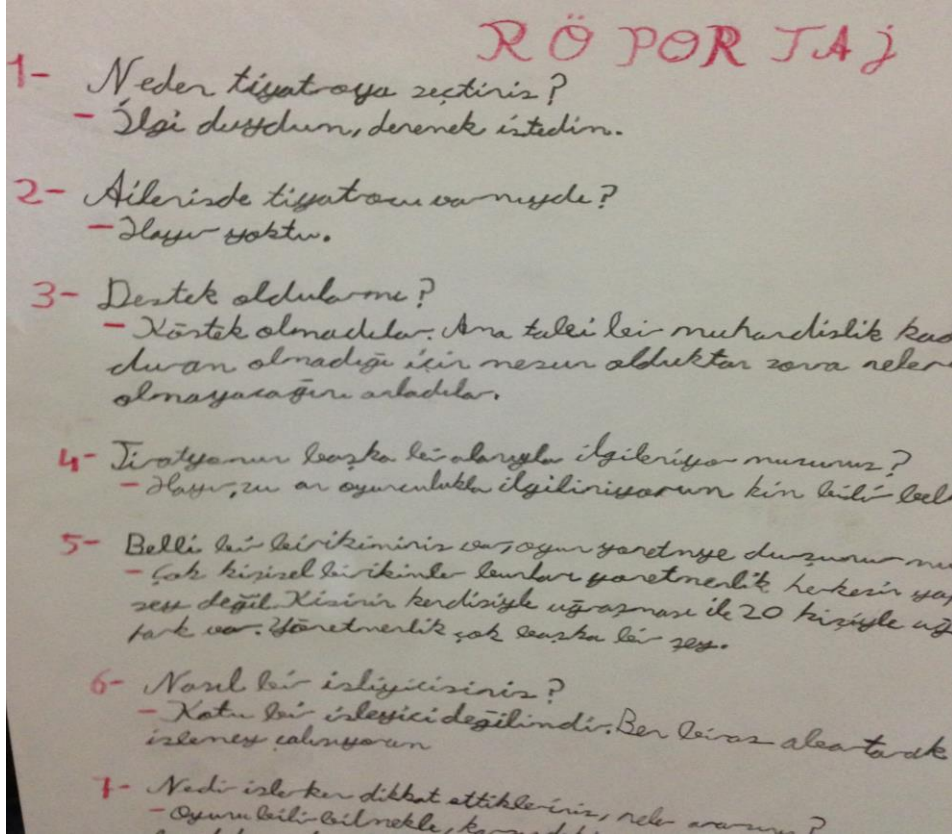 RÖPORTAJ
1- Neden tiyatroyu seçtiniz?
- İlgi duydum, denemek istedim.
2- Ailenizde tiyatrocu varmıydı?
- Hayır yoktu.
3- Destek oldularmı?
- Köstek olmadılar. Ama tabi bir muhendislik kad
durum olmadığı için mezun olduktan sonra neler
olmayacağını anladılar.
4- Tiyatronun başka bir alanıyla ilgileniyor musunuz?
- Hayır, şu an oyunculukla ilgileniyorum kim bilir bel
5- Belli bir birikiminiz var, oyun yonetmeye duşunur mu
- Çok kişisel birikimler bunlar yonetmenlik herkesin yap
şey değil. Kişinin kendisiyle uğraşması ile 20 kişiyle uğ
fark var. Yönetmenlik çok başka bir şey.
6- Nasıl bir izleyicisiniz?
- Kotu bir izleyici değilimdir. Ben biraz abartarak
izlemey çalışıyorum
7- Nedir izlerken dikkat ettikleriniz, neler ararsınız?
- Oyunu bilebilmekle,